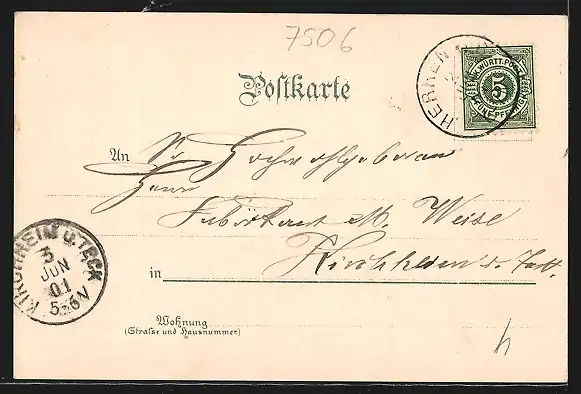 7506
Postkarte
HERREN
K. WÜRTT. POST
5
FÜNF PFENNIG
An Sr. Hochwohlgeboren
Herrn
Fabrikant M. Weise
in Kirchheim u. Teck
KIRCHHEIM U. TECK
3
JUN
01
5-6N
Wohnung
(Straße und Hausnummer)